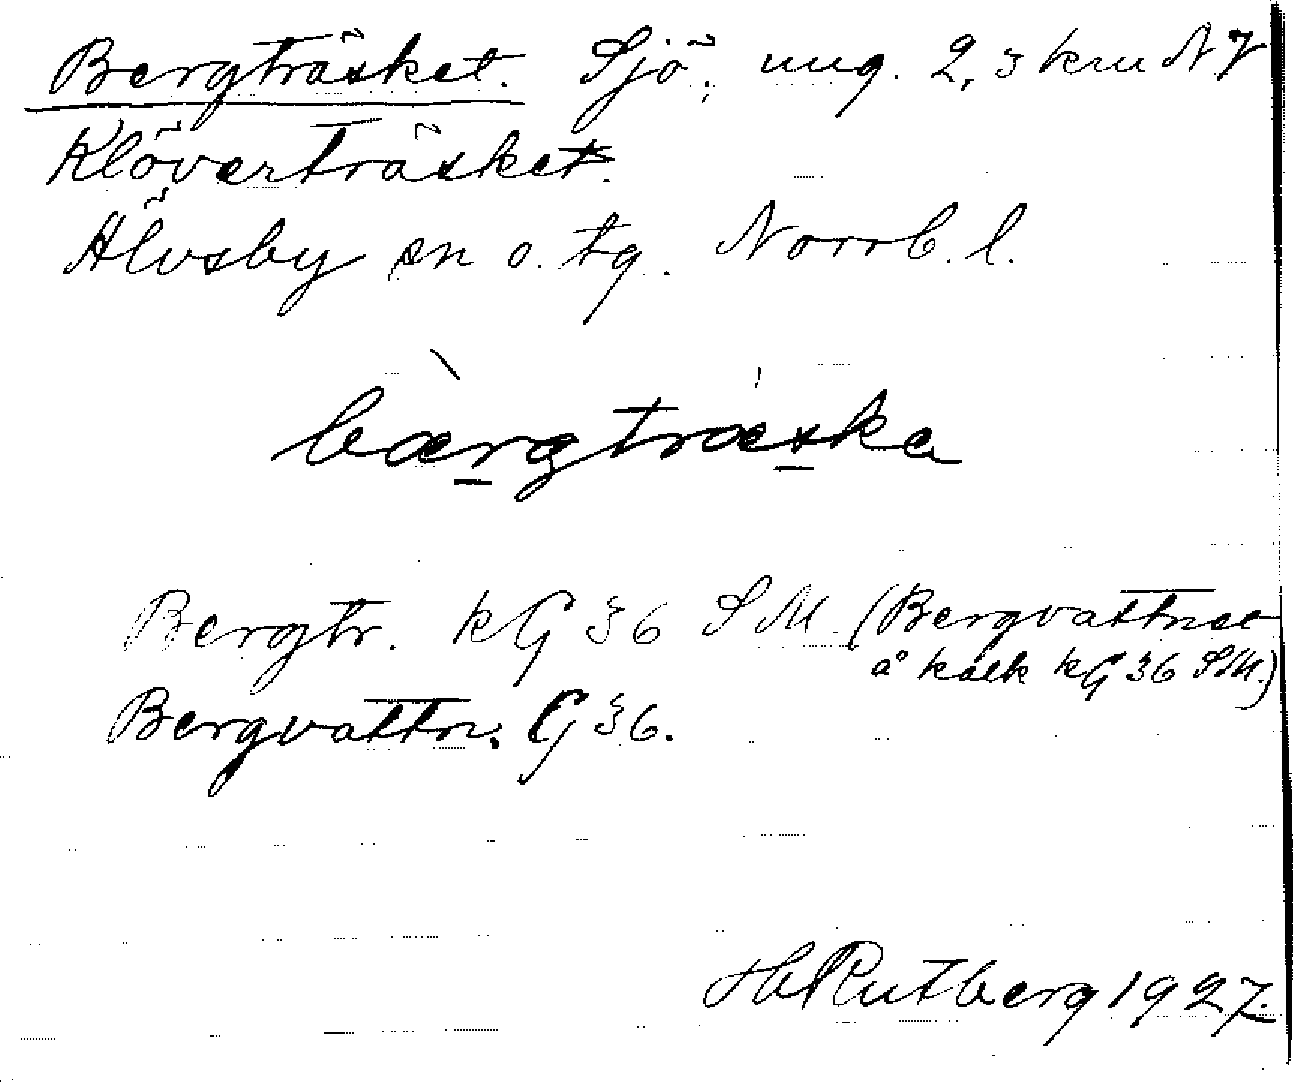 Bergträsket. Sjö, ung. 2,3 km NV
Klöverträsket.
Älvsby sn o. tg. Norrb. l.
bærgtræska
Bergtr. kG 36 SM (Bergvattnet
å kalk kG 36 SM.)
Bergvattn. G 36.
H Rutberg 1927.